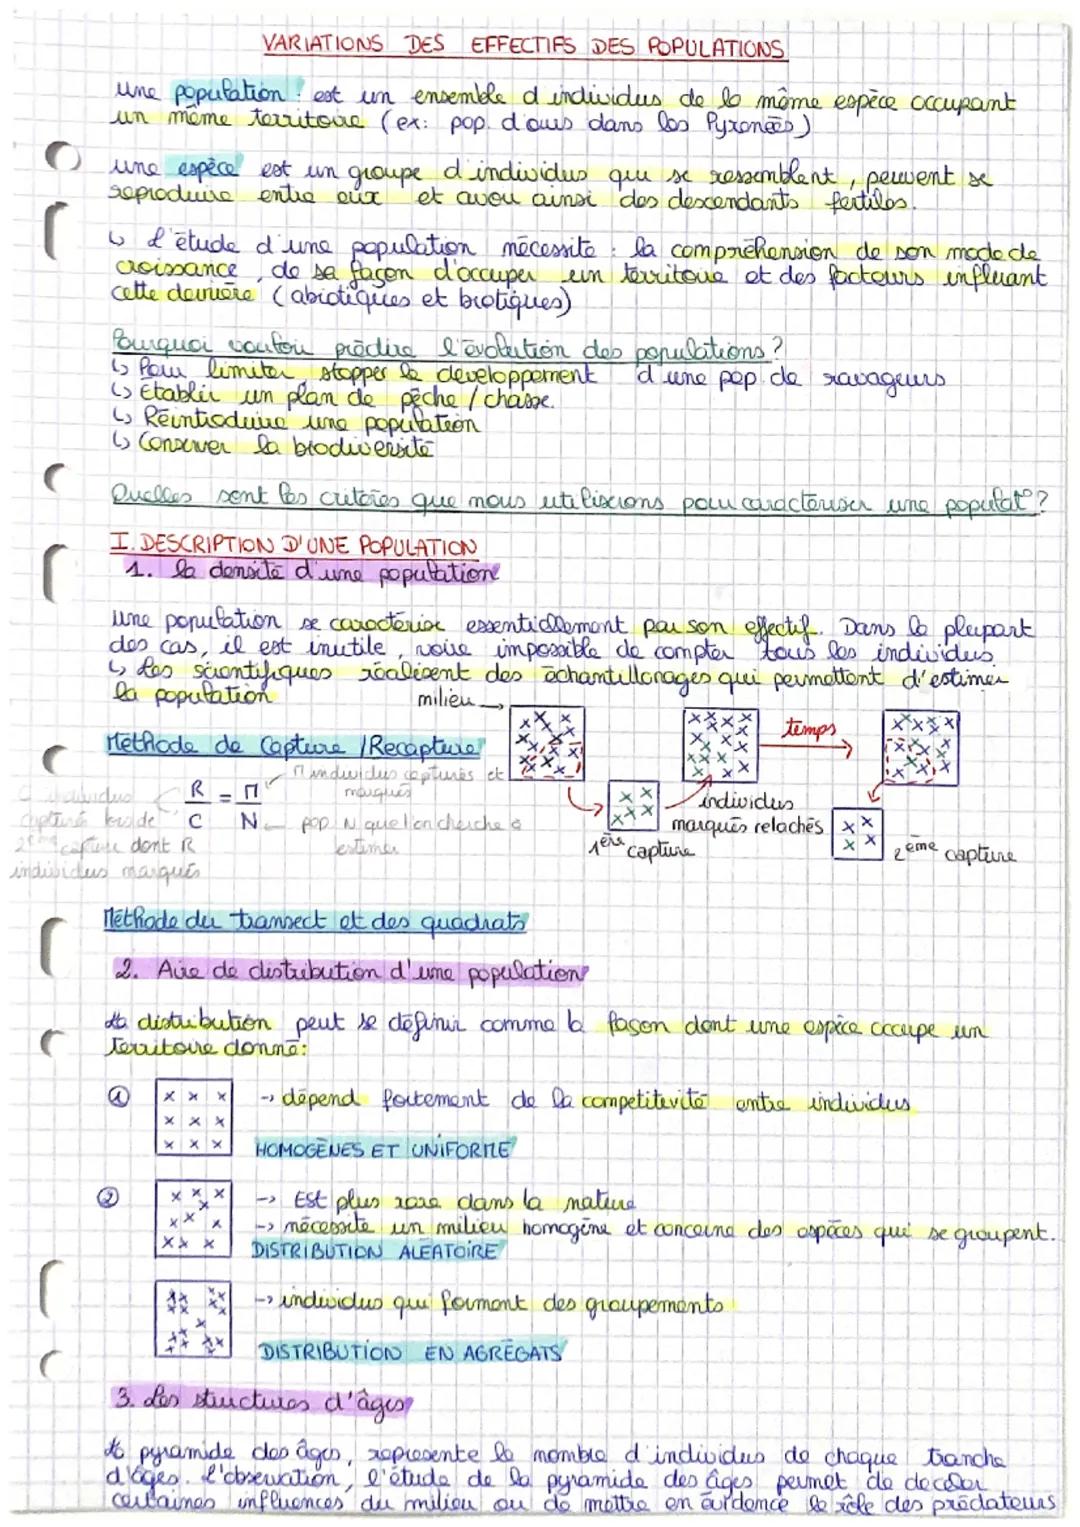 VARIATIONS DES EFFECTIFS DES POPULATIONS
une population : est un ensemble d'individus de la même espèce occupant
un même territoire (ex: pop. d'ours dans les Pyrénées)
une espèce est un groupe d'individus qui se ressemblent, peuvent se
reproduire entre eux et avoir ainsi des descendants fertiles.
↳ L'étude d'une population nécessite : la compréhension de son mode de
croissance, de sa façon d'occuper un territoire et des facteurs influant
cette dernière (abiotiques et biotiques)
Pourquoi vouloir prédire l'évolution des populations ?
↳ Pour limiter, stopper le développement d'une pop. de ravageurs
↳ Établir un plan de pêche / chasse.
↳ Réintroduire une population
↳ Conserver la biodiversité
Quelles sont les critères que nous utiliserons pour caractériser une populat° ?
I. DESCRIPTION D'UNE POPULATION
1. la densité d'une population
une population se caractérise essentiellement par son effectif. Dans la plupart
des cas, il est inutile, voire impossible de compter tous les individus
↳ Les scientifiques réalisent des échantillonages qui permettent d'estimer
la population
milieu →
temps
Méthode de Capture / Recapture
M individus capturés et
marqués
R/C = M/N
C individus
capturés lors de
2ème capture dont R
individus marqués
pop N que l'on cherche à
estimer
individus
marqués relachés
1ère capture
2ème capture
Méthode du transect et des quadrats
2. Aire de distribution d'une population
La distribution peut se définir comme la façon dont une espèce occupe un
territoire donné :
① → dépend fortement de la competitivité entre individus
HOMOGÈNES ET UNIFORME
② → Est plus rare dans la nature
→ nécessite un milieu homogène et concerne des espèces qui se groupent.
DISTRIBUTION ALÉATOIRE
→ individus qui forment des groupements
DISTRIBUTION EN AGRÉGATS
3. Les structures d'âges
La pyramide des âges, représente le nombre d'individus de chaque tranche
d'âges. L'observation, l'étude de la pyramide des âges permet de déceler
certaines influences du milieu ou de mettre en évidence le rôle des prédateurs